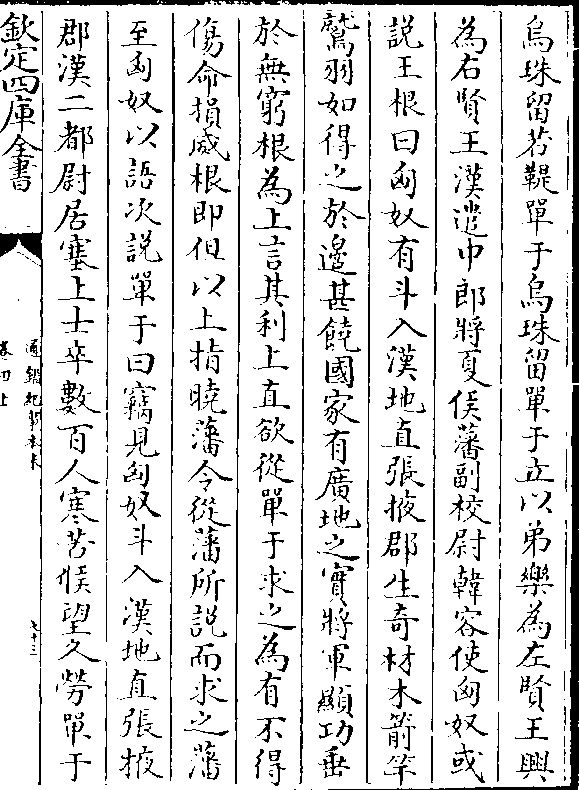 烏珠留若鞮單于烏珠留單于立以弟樂為左賢王輿
為右賢王漢遣中郎將夏侯藩副校尉韓容使匈奴或
說王根曰匈奴有斗入漢地直張掖郡生奇材木箭竿
鷲羽如得之於邊甚饒國家有廣地之實將軍顯功垂
於無窮根為上言其利上直欲從單于求之為有不得
傷命損威根即但以上指曉藩令從藩所說而求之藩
至匈奴以語次說單于曰竊見匈奴斗入漢地直張掖
郡漢二都尉居塞上士卒數百人寒苦候望久勞單于
欽定四庫全書
通鑑紀事本末